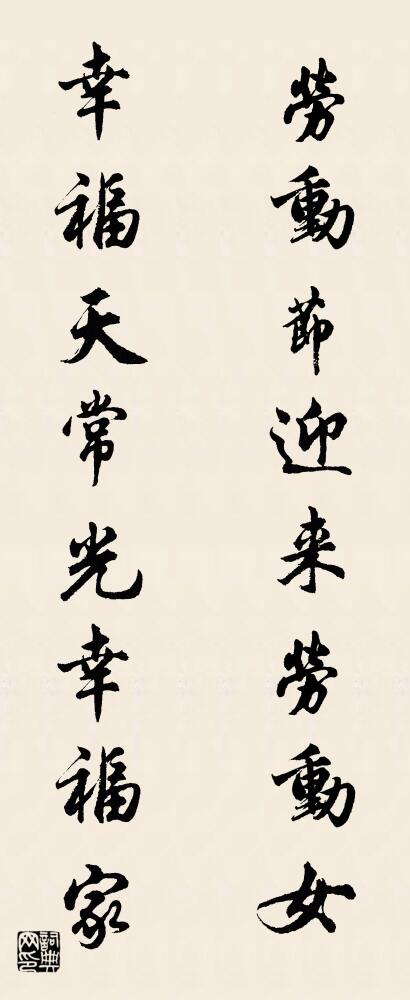 勞動節迎来勞動女
幸福天常光幸福家
詞典網印